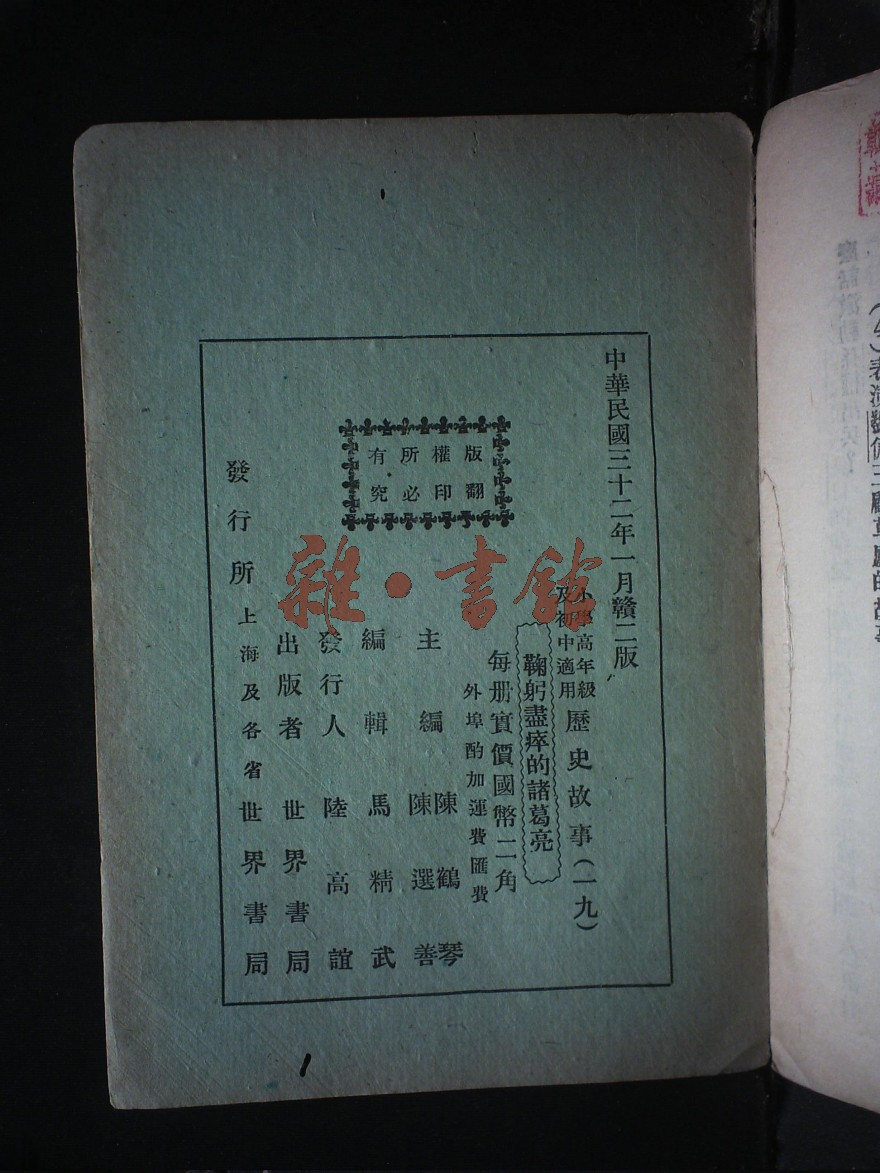 中華民國三十二年一月贛二版
小學高年級
及初中適用
歷史故事(一九)
鞠躬盡瘁的諸葛亮
每册實價國幣二角
外埠酌加運費匯費
主編 陳鶴琴
陳選善
編輯 馬精武
發行人 陸高誼
出版者 世界書局
發行所 上海及各省世界書局
版權所有
翻印必究
雜·書館